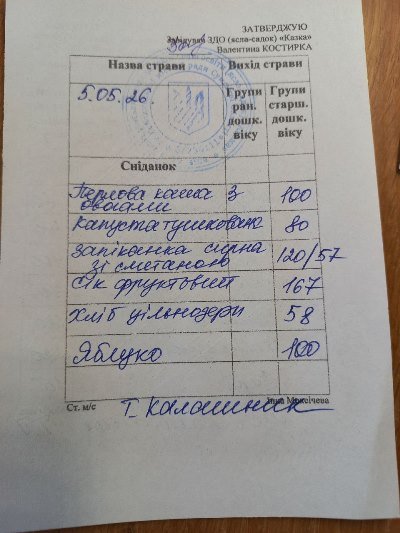 ЗАТВЕРДЖУЮ
Завідувач ЗДО (ясла-садок) «Казка»
Валентина КОСТИРКА
Назва страви Вихід страви
5.05.26. Групи ран. дошк. віку Групи старш. дошк. віку
Сніданок
Перлова каша з 100
овочами
Капуста тушкована 80
Запіканка сирна 120/57
зі сметаною
Сік фруктовий 167
Хліб цільнозерн 58
Яблуко 100
Ст. м/с Т. Калашник